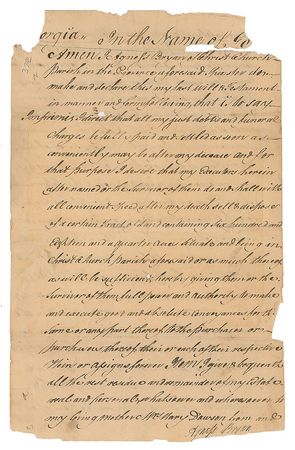 orgia In the Name of Go
Amen. I Agness Bryan of Christ Church
Parish in the Province aforesaid Spinster do
make and declare this my last Will & Testament
in manner and form following that is to say
Imprimis I direct that all my just debts and funeral
Charges be fully paid and settled as soon as
conveniently may be after my decease and for
that purpose I desire that my Executors herein
after named or the Survivor of them do and shall with
all convenient speed after my death sell & dispose
of a certain tract of land containing Six hundred and
Eighteen and a quarter acres situate and being in
Christ Church Parish aforesaid or as much thereof
as will be sufficient hereby giving them or the
Survivor of them full power and Authority to make
and execute good and absolute Conveyances for the
same or any part thereof to the purchaser or
purchasers thereof their or each of their respective
Heirs or Assigns forever. Item I give & bequeath
all the rest residue and remainder of my Estate
real and personal whatsoever and wheresoever to
my loving Mother Mrs Mary Dawson her and